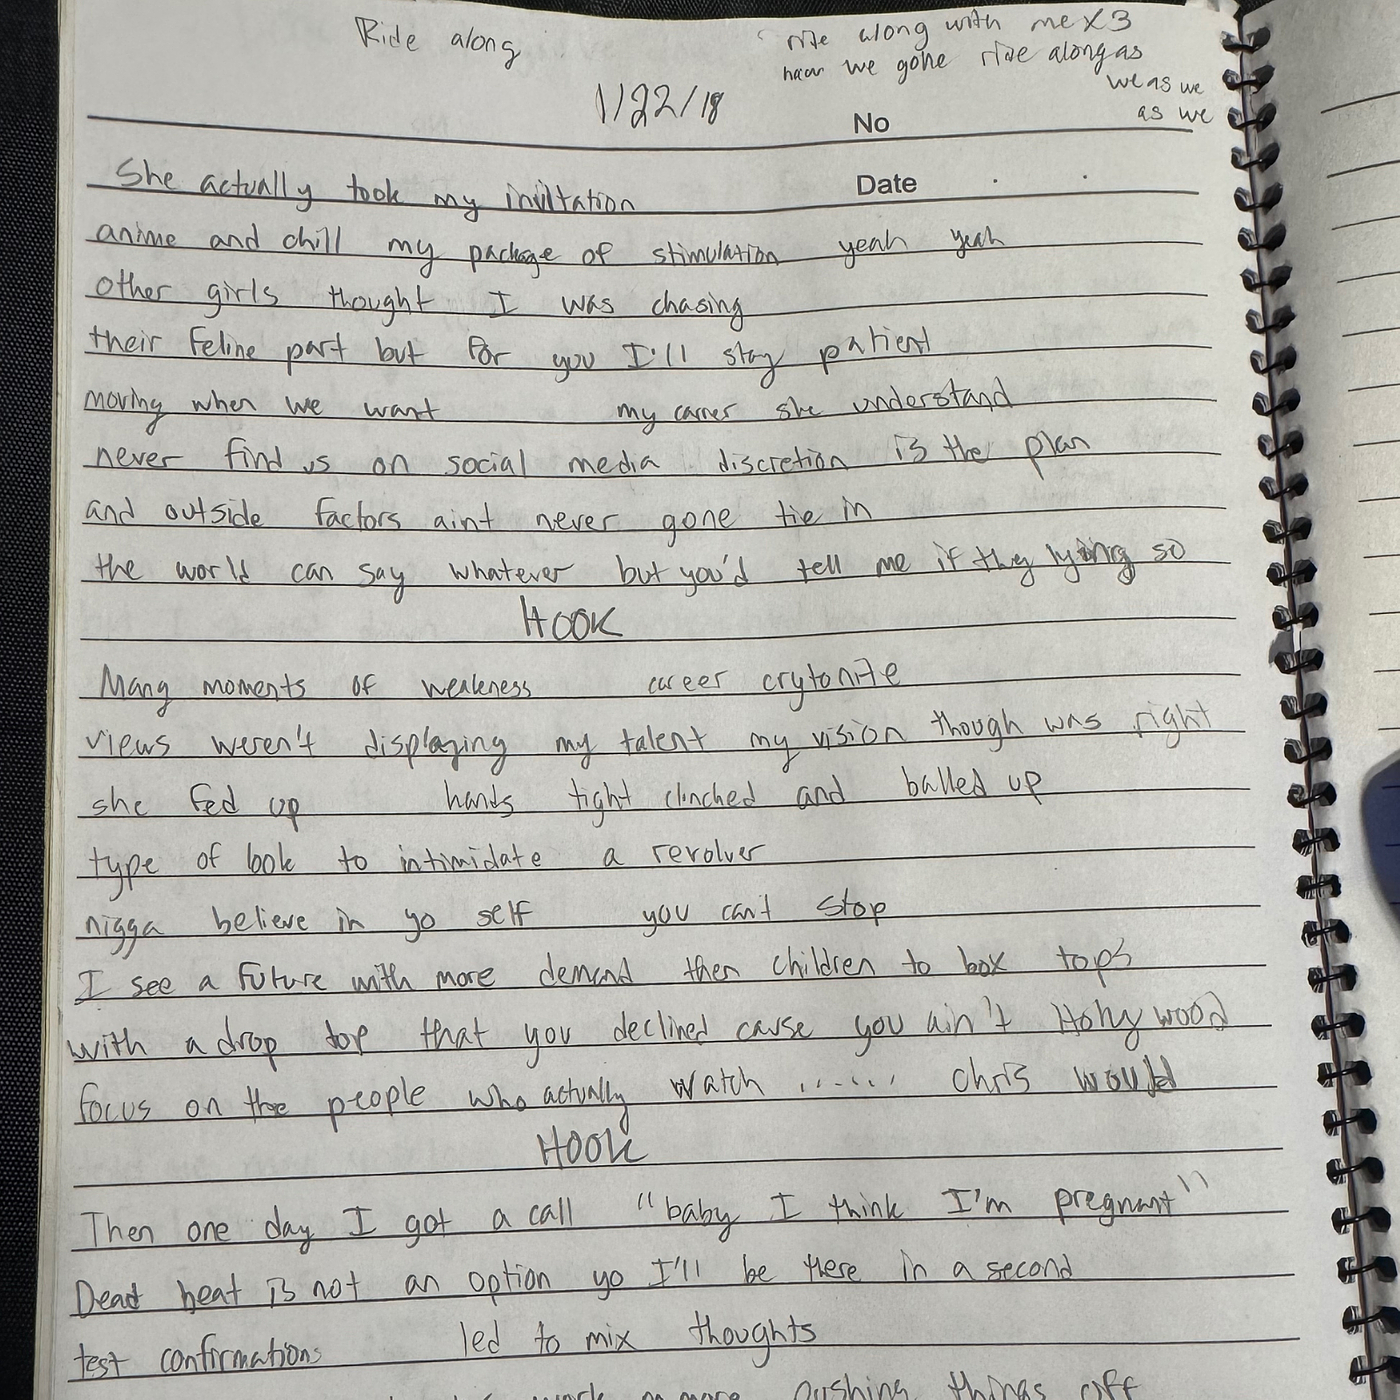 Ride along
ride along with me x3
we gone ride along as
we as we
as we
1/22/18
No
Date
She actually took my invitation
anime and chill my package of stimulation yeah yeah
other girls thought I was chasing
their feline part but for you I'll stay patient
moving when we want my career she understand
never find us on social media discretion is the plan
and outside factors aint never gone tie in
the world can say whatever but you'd tell me if they lying so
HOOK
Many moments of weakness career crytonite
views weren't displaying my talent my vision though was right
she fed up hands tight clinched and balled up
type of look to intimidate a revolver
nigga believe in yo self you can't stop
I see a future with more demand then children to box tops
with a drop top that you declined cause you ain't Hollywood
focus on the people who actually watch ...... Chris would
HOOK
Then one day I got a call "baby I think I'm pregnant"
Dead beat is not an option yo I'll be there in a second
test confirmations led to mix thoughts
work no more pushing things off